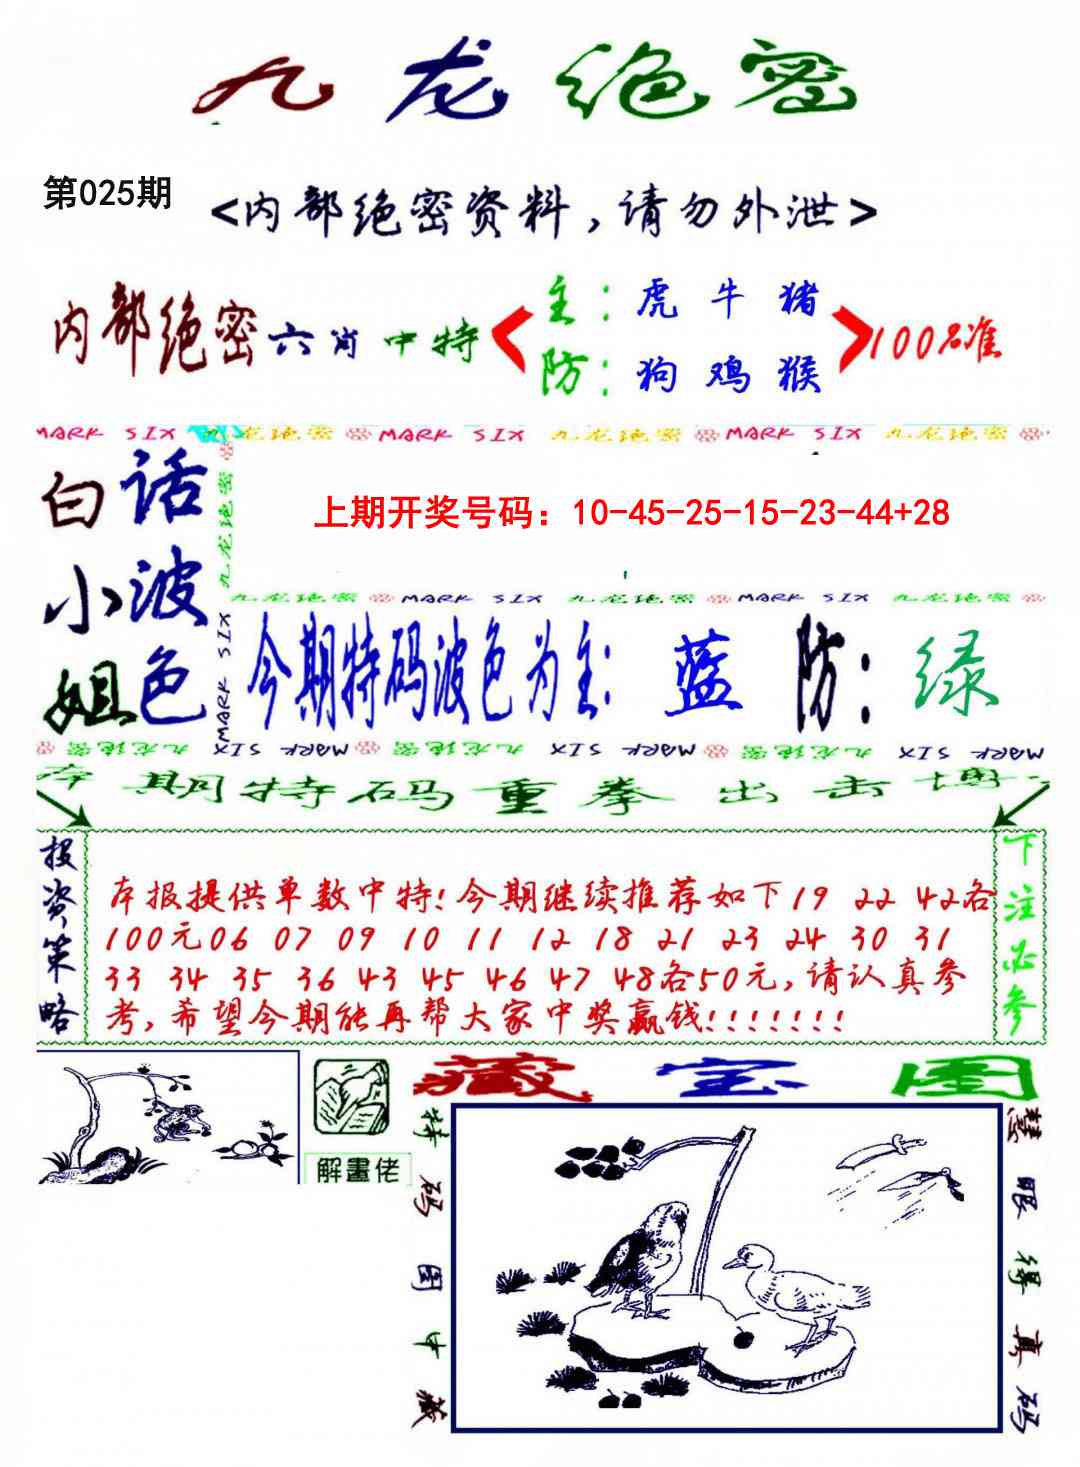 九龙绝密
第025期
<内部绝密资料,请勿外泄>
内部绝密六肖中特
主:虎 牛 猪
防:狗 鸡 猴
100%准
MARK SIX 九龙绝密 MARK SIX 九龙绝密 MARK SIX 九龙绝密
白话小波姐色
九龙绝密
MARK SIX
上期开奖号码：10-45-25-15-23-44+28
九龙绝密 MARK SIX 九龙绝密 MARK SIX 九龙绝密
今期特码波色为主:蓝 防:绿
九龙绝密 MARK SIX 九龙绝密 MARK SIX 九龙绝密 MARK SIX
本期特码重拳出击博
投资策略
本报提供单数中特!今期继续推荐如下19 22 42各
100元06 07 09 10 11 12 18 21 23 24 30 31
33 34 35 36 43 45 46 47 48各50元,请认真参
考,希望今期能再帮大家中奖赢钱!!!!!!!
下注必参
藏宝图
解畫佬
特码图中藏
慧眼得真码